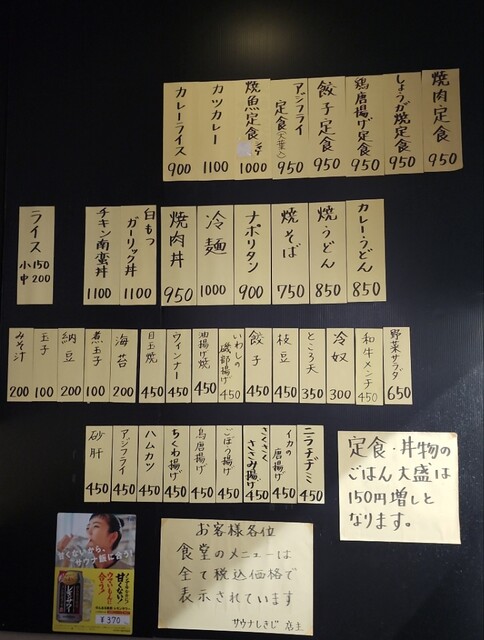 焼肉定食 950
しょうが焼定食 950
鶏唐揚げ定食 950
餃子定食 950
アジフライ定食(大葉入) 950
焼魚定食 1000
カツカレー 1100
カレーライス 900
カレーうどん 850
焼うどん 850
焼そば 750
ナポリタン 900
冷麺 1000
焼肉丼 950
白もつガーリック丼 1100
チキン南蛮丼 1100
ライス 小150 中200
野菜サラダ 650
和牛メンチ 450
冷奴 300
ところ天 350
枝豆 450
餃子 450
いわしの磯部揚げ 450
油揚げ焼 450
ウィンナー 450
目玉焼 450
海苔 200
煮玉子 100
納豆 200
玉子 100
みそ汁 200
ニラチヂミ 450
イカの唐揚げ 450
さくさくささみ揚げ 450
ごぼう揚げ 450
鳥唐揚げ 450
ちくわ揚げ 450
ハムカツ 450
アジフライ 450
砂肝 450
定食・丼物の
ごはん大盛は
150円増しと
なります。
お客様各位
食堂のメニューは
全て税込価格で
表示されています
サウナしきじ 店主
甘くないから、
サウナ飯に合う!
甘くない!
¥370